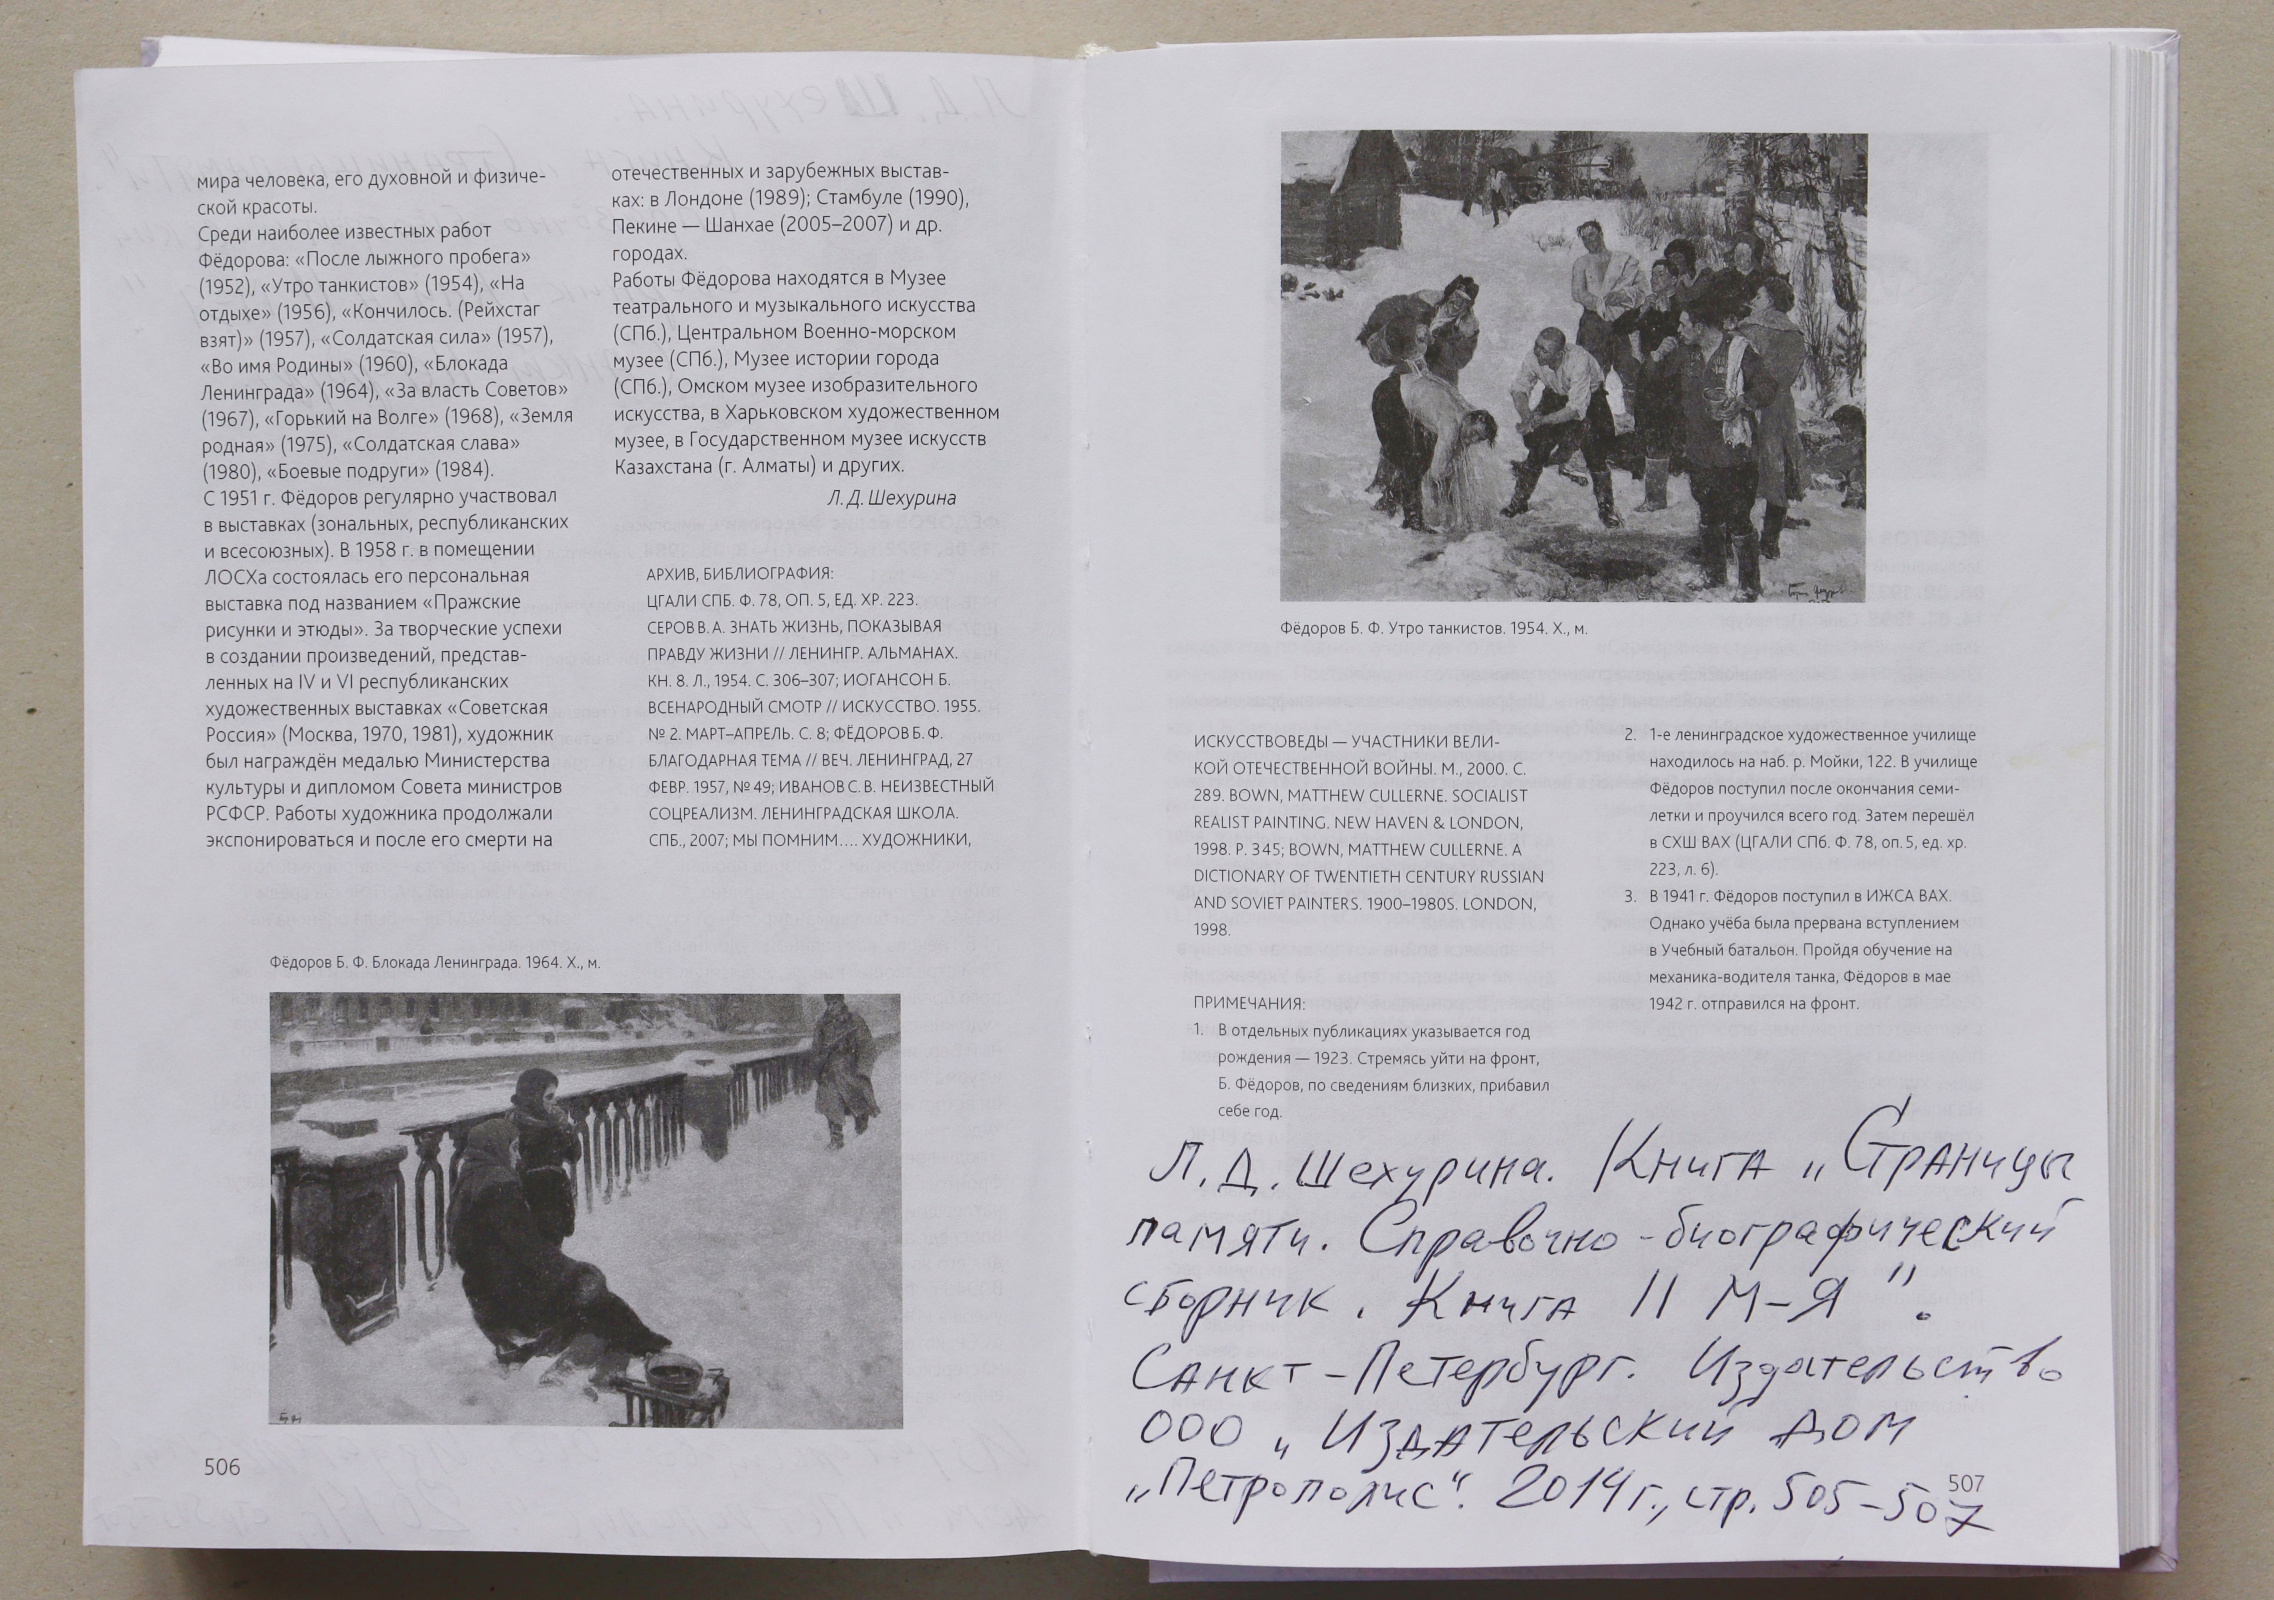 мира человека, его духовной и физиче-
ской красоты.
Среди наиболее известных работ
Фёдорова: «После лыжного пробега»
(1952), «Утро танкистов» (1954), «На
отдыхе» (1956), «Кончилось. (Рейхстаг
взят)» (1957), «Солдатская сила» (1957),
«Во имя Родины» (1960), «Блокада
Ленинграда» (1964), «За власть Советов»
(1967), «Горький на Волге» (1968), «Земля
родная» (1975), «Солдатская слава»
(1980), «Боевые подруги» (1984).
С 1951 г. Фёдоров регулярно участвовал
в выставках (зональных, республиканских
и всесоюзных). В 1958 г. в помещении
ЛОСХа состоялась его персональная
выставка под названием «Пражские
рисунки и этюды». За творческие успехи
в создании произведений, представ-
ленных на IV и VI республиканских
художественных выставках «Советская
Россия» (Москва, 1970, 1981), художник
был награждён медалью Министерства
культуры и дипломом Совета министров
РСФСР. Работы художника продолжали
экспонироваться и после его смерти на
отечественных и зарубежных выстав-
ках: в Лондоне (1989); Стамбуле (1990),
Пекине — Шанхае (2005–2007) и др.
городах.
Работы Фёдорова находятся в Музее
театрального и музыкального искусства
(СПб.), Центральном Военно-морском
музее (СПб.), Музее истории города
(СПб.), Омском музее изобразительного
искусства, в Харьковском художественном
музее, в Государственном музее искусств
Казахстана (г. Алматы) и других.
Л. Д. Шехурина
АРХИВ, БИБЛИОГРАФИЯ:
ЦГАЛИ СПБ. Ф. 78, ОП. 5, ЕД. ХР. 223.
СЕРОВ В. А. ЗНАТЬ ЖИЗНЬ, ПОКАЗЫВАЯ
ПРАВДУ ЖИЗНИ // ЛЕНИНГР. АЛЬМАНАХ.
КН. 8. Л., 1954. С. 306–307; ИОГАНСОН Б.
ВСЕНАРОДНЫЙ СМОТР // ИСКУССТВО. 1955.
№ 2. МАРТ–АПРЕЛЬ. С. 8; ФЁДОРОВ Б. Ф.
БЛАГОДАРНАЯ ТЕМА // ВЕЧ. ЛЕНИНГРАД, 27
ФЕВР. 1957, № 49; ИВАНОВ С. В. НЕИЗВЕСТНЫЙ
СОЦРЕАЛИЗМ. ЛЕНИНГРАДСКАЯ ШКОЛА.
СПБ., 2007; МЫ ПОМНИМ.... ХУДОЖНИКИ,
Фёдоров Б. Ф. Блокада Ленинграда. 1964. Х., м.
506
Фёдоров Б. Ф. Утро танкистов. 1954. Х., м.
ИСКУССТВОВЕДЫ — УЧАСТНИКИ ВЕЛИ-
КОЙ ОТЕЧЕСТВЕННОЙ ВОЙНЫ. М., 2000. С.
289. BOWN, MATTHEW CULLERNE. SOCIALIST
REALIST PAINTING. NEW HAVEN & LONDON,
1998. P. 345; BOWN, MATTHEW CULLERNE. A
DICTIONARY OF TWENTIETH CENTURY RUSSIAN
AND SOVIET PAINTERS. 1900–1980S. LONDON,
1998.
ПРИМЕЧАНИЯ:
1. В отдельных публикациях указывается год
рождения — 1923. Стремясь уйти на фронт,
Б. Фёдоров, по сведениям близких, прибавил
себе год.
2. 1-е ленинградское художественное училище
находилось на наб. р. Мойки, 122. В училище
Фёдоров поступил после окончания семи-
летки и проучился всего год. Затем перешёл
в СХШ ВАХ (ЦГАЛИ СПб. Ф. 78, оп. 5, ед. хр.
223, л. 6).
3. В 1941 г. Фёдоров поступил в ИЖСА ВАХ.
Однако учёба была прервана вступлением
в Учебный батальон. Пройдя обучение на
механика-водителя танка, Фёдоров в мае
1942 г. отправился на фронт.
Л. Д. Шехурина. Книга „Страницы
памяти. Справочно-биографический
сборник. Книга II М–Я".
Санкт-Петербург. Издательство
ООО „Издательский дом
„Петрополис". 2014 г., стр. 505–507
507